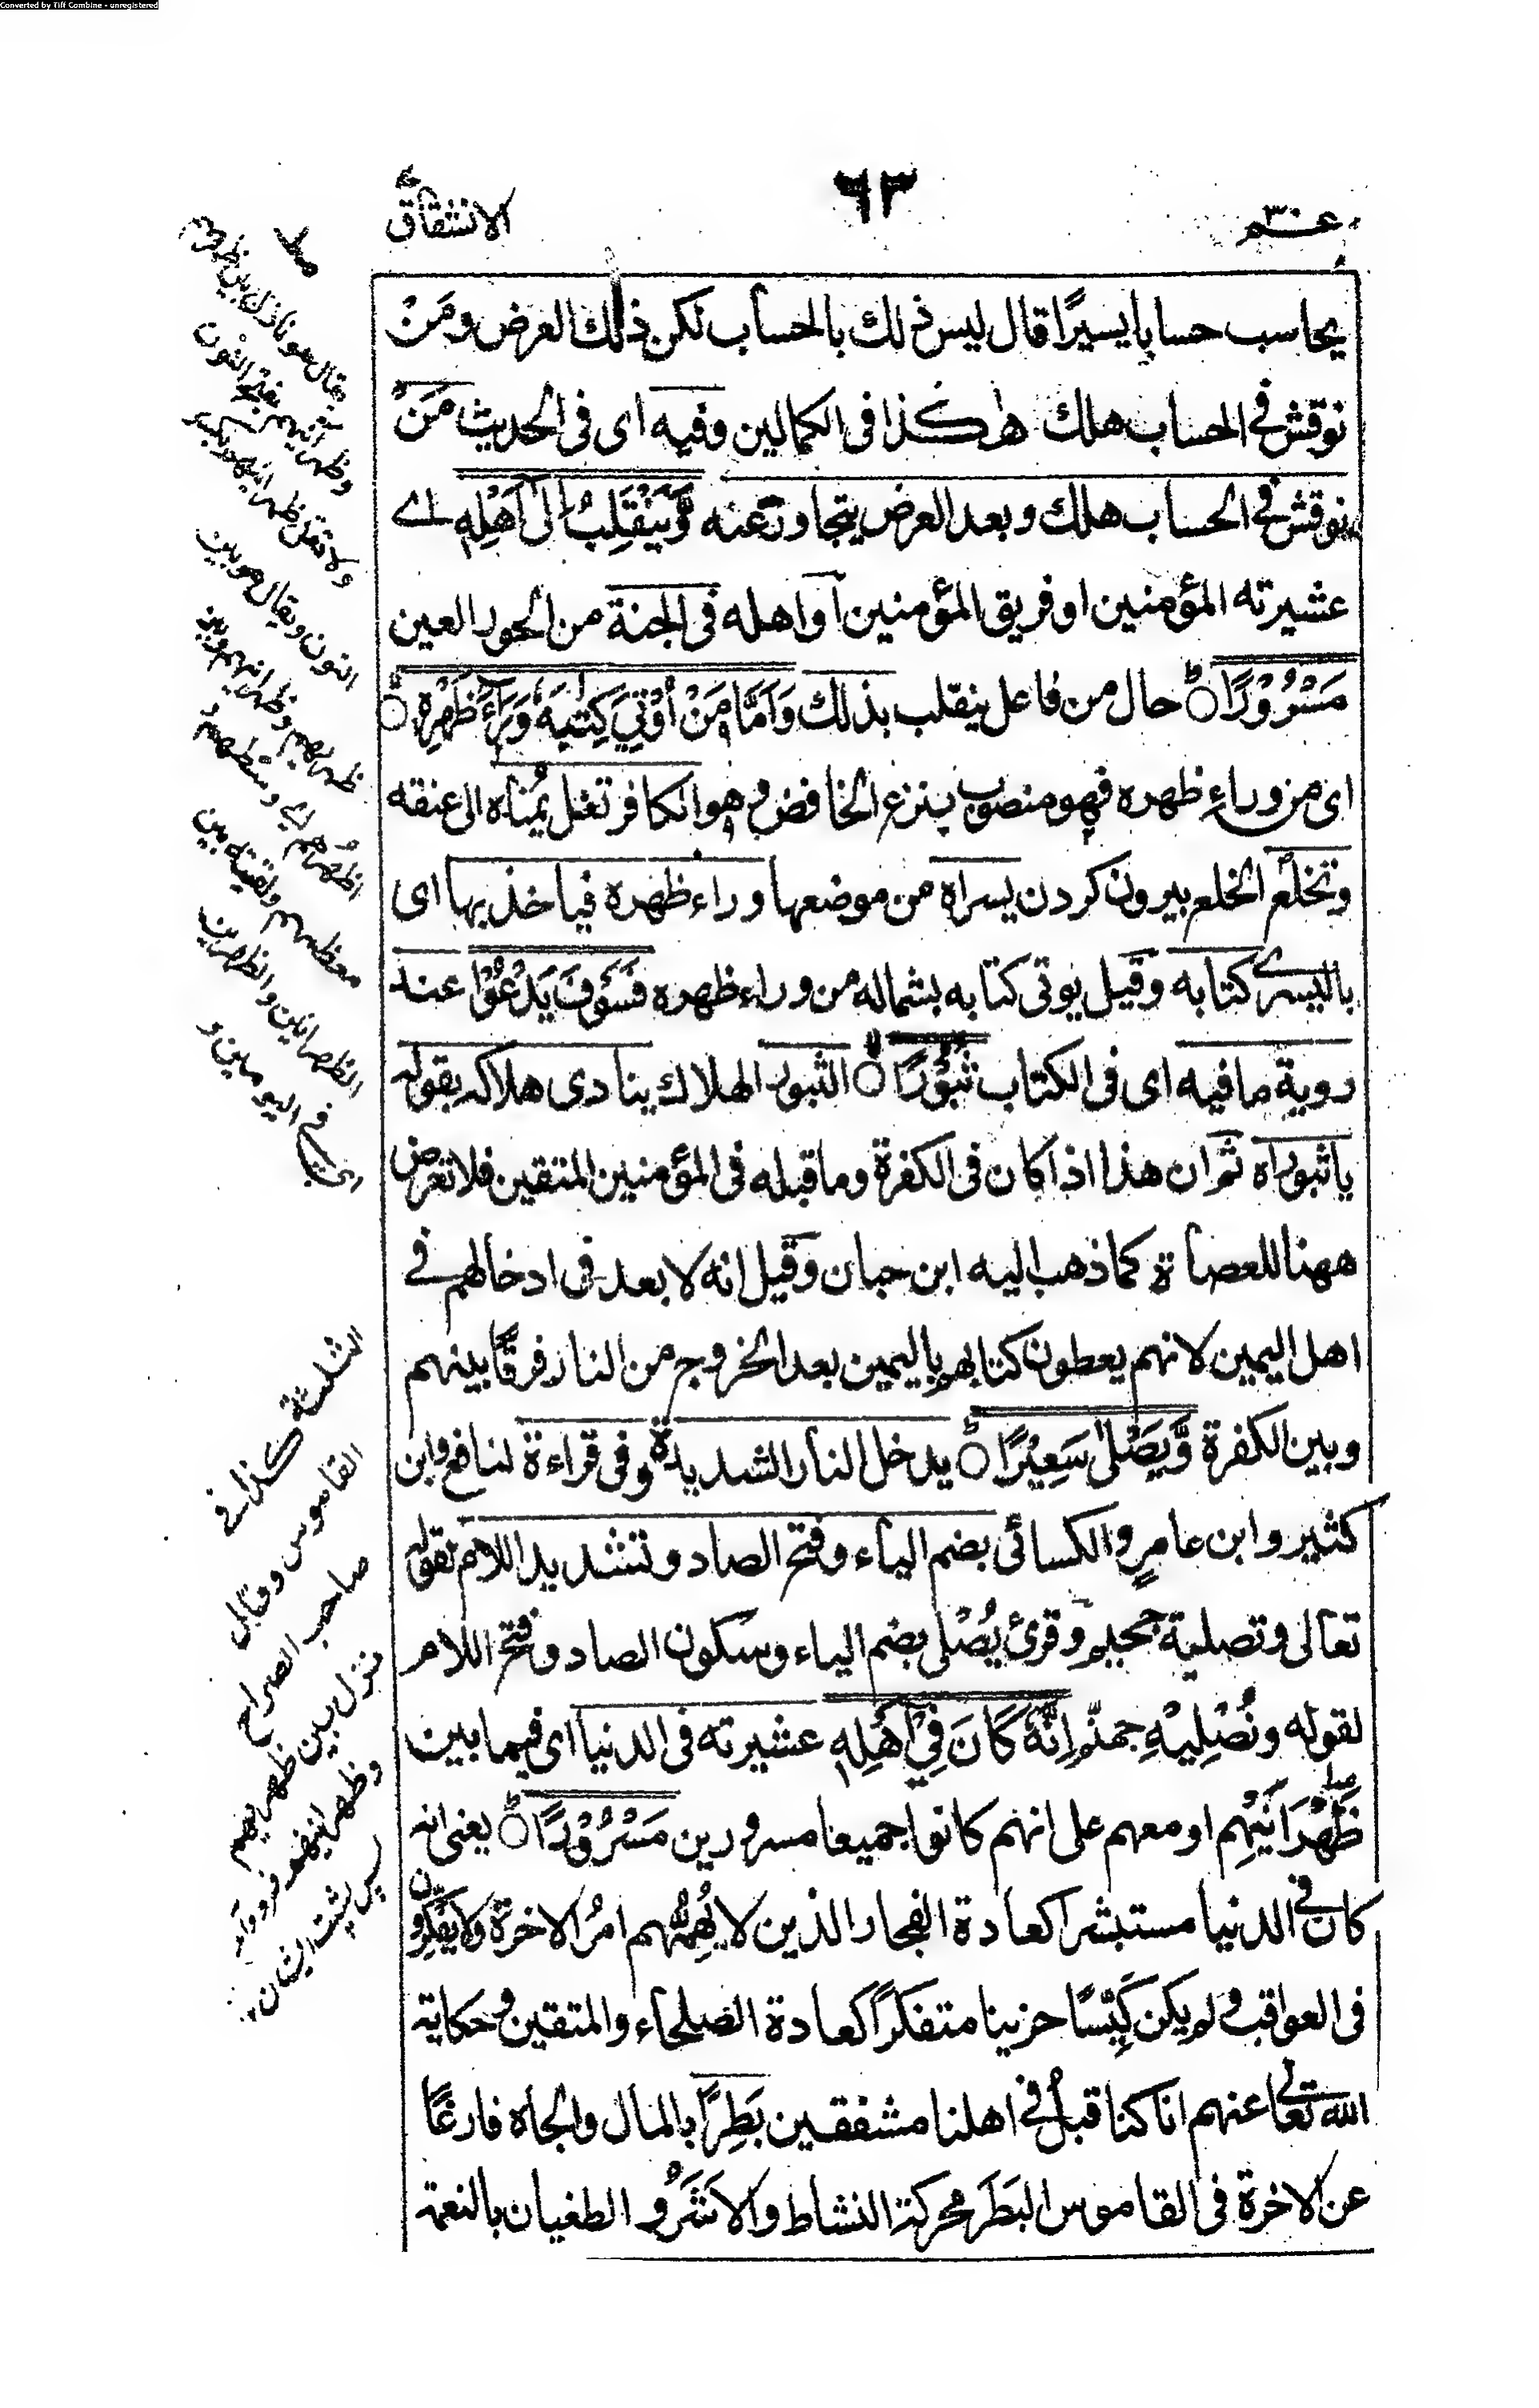 Converted by Tiff Combine - unregistered
عم ٣٠
٦٣
الانشقاق
يحاسب حسابا يسيرًا قال ليس ذلك بالحساب لكن ذلك العرض ومَنْ
نوقش فى الحساب هلك هٰكذا فى الكمالين وفيه اى فى الحديث مَنْ
نوقش فى الحساب هلك وبعد العرض يتجاوز عنه وَّيَنْقَلِبُ اِلٰۤى اَهْلِهٖ اے
عشيرته المؤمنين او فريق المؤمنين او اهله فى الجنة من الحور العين
مَسْرُوْرًا حال من فاعل ينقلب بذلك وَاَمَّا مَنْ اُوْتِيَ كِتٰبَهٗ وَرَآءَ ظَهْرِهٖ
اى من وراء ظهره فهو منصوب بنزع الخافض وهو الكافر تغل يُمناه الى عنقه
وتخلع الخلع بيرون كردن يسراه من موضعها وراء ظهره فياخذ بها اى
باليسرے كتابه وقيل يوتى كتابه بشماله من وراء ظهره فَسَوْفَ يَدْعُوْا عند
روية ما فيه اى فى الكتاب ثُبُوْرًا الثبور الهلاك ينادى هلاكه بقوله
يا ثبوراه ثم ان هذا اذا كان فى الكفرة وما قبله فى المؤمنين المتقين فلا تعرض
ههنا للعصاة كما ذهب اليه ابن حبان وقيل انه لا بعد فى ادخالهم فے
اهل اليمين لانهم يعطون كتابهم باليمين بعد الخروج من النار فرقًا بينهم
وبين الكفرة وَّيَصْلٰى سَعِيْرًا يدخل النار الشديدة وفى قراءة لنافع وابن
كثير وابن عامرٍ والكسائى بضم الياء وفتح الصاد وتشديد اللام بقوله
تعالى وتصلية جحيم وقرئ يُصْلٰى بضم الياء وسكون الصاد وفتح اللام
لقوله ونُصْلِيْهِ جهنم اِنَّهٗ كَانَ فِيْۤ اَهْلِهٖ عشيرته فى الدنيا اى فيما بين
ظَهْرَانَيْهِم او معهم على انهم كانوا جميعا مسرورين مَسْرُوْرًا يعنى انه
كان فى الدنيا مستبشرا كعادة الفجار الذين لا يُهِمُّهم امرُ الاخرة ولا يفكرون
فى العواقب ولم يكن كَيِّسًا حزينا متفكرًا كعادة الصلحاء والمتقين وحكاية
الله تعالى عنهم انا كنا قبلُ فى اهلنا مشفقين بَطِرًا بالمال والجاه فارغًا
عن الاخرة فى القاموس البَطَرَ محركة النشاط والاَشَرُ و الطغيان بالنعمة
يقال هو نازل بين ظهريهم
وظهرانيهم بفتح النون
ولا تقل ظهرانيهم بكسر
النون ويقال هو بين
ظهريهم وظهرانيهم وبين
اظهُرهم اے وسطهم و
معظمهم ولقيته بين
الظهرانين والظهرين
اى فى اليومين و
الثلثة كذا فى
القاموس وقال
صاحب الصراح
نزل بين ظهريهم